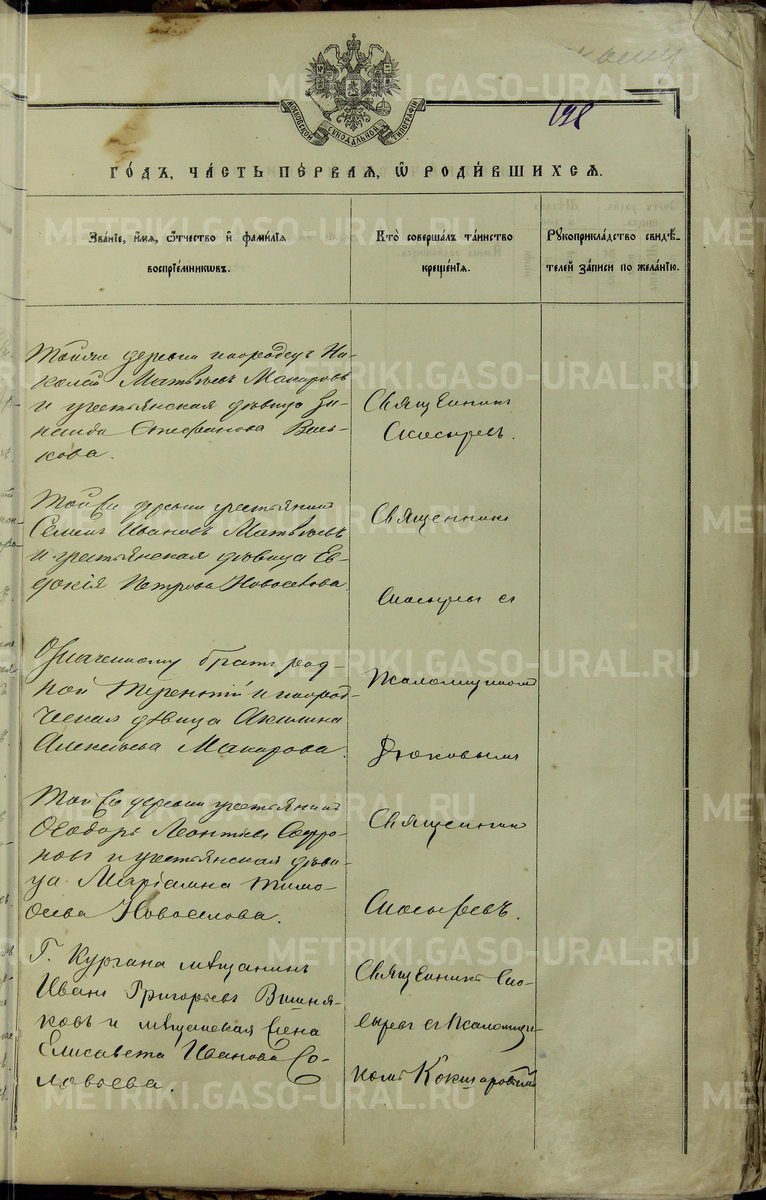 METRIKI.GASO-URAL.RU
МОСКОВСКОЙ СѴНОДАЛЬНОЙ ТИПОГРАФІИ
198
ГО́ДЪ, ЧА́СТЬ ПЕ́РВАЯ, Ѽ РОДИ́ВШИХСЯ.
Зва́ніе, и́мя, о́тчество и фами́лія
воспріе́мниковъ.
Кто̀ соверша́лъ та́инство
креще́нія.
Рꙋкоприкла́дство свидѣ́-
телей за́писи по жела́нію.
Той же деревни инородецъ Ни-
колай Матвѣевъ Макаровъ
и крестьянская дѣвица Зи-
наида Стефанова Вась-
кова.
Священникъ
Скосыревъ.
Той же деревни крестьянинъ
Семенъ Ивановъ Матвѣевъ
и крестьянская дѣвица Ев-
докія Петрова Новоселова.
Священникъ
Скосыревъ съ
Означенному братъ род-
ной Терентій и инород-
ческая дѣвица Акилина
Алексѣева Макарова.
Псаломщикомъ
Дюковымъ
Той же деревни крестьянинъ
Ѳеодоръ Леонтіевъ Софро-
новъ и крестьянская дѣви-
ца Маріамна Тимо-
ѳеева Новоселова.
Священникъ
Скосыревъ.
Г. Кургана мѣщанинъ
Иванъ Григорьевъ Вишня-
ковъ и мѣщанская жена
Елисавета Иванова Со-
ловьева.
Священникъ Ско-
сыревъ съ Псаломщи-
комъ Кокшаровымъ